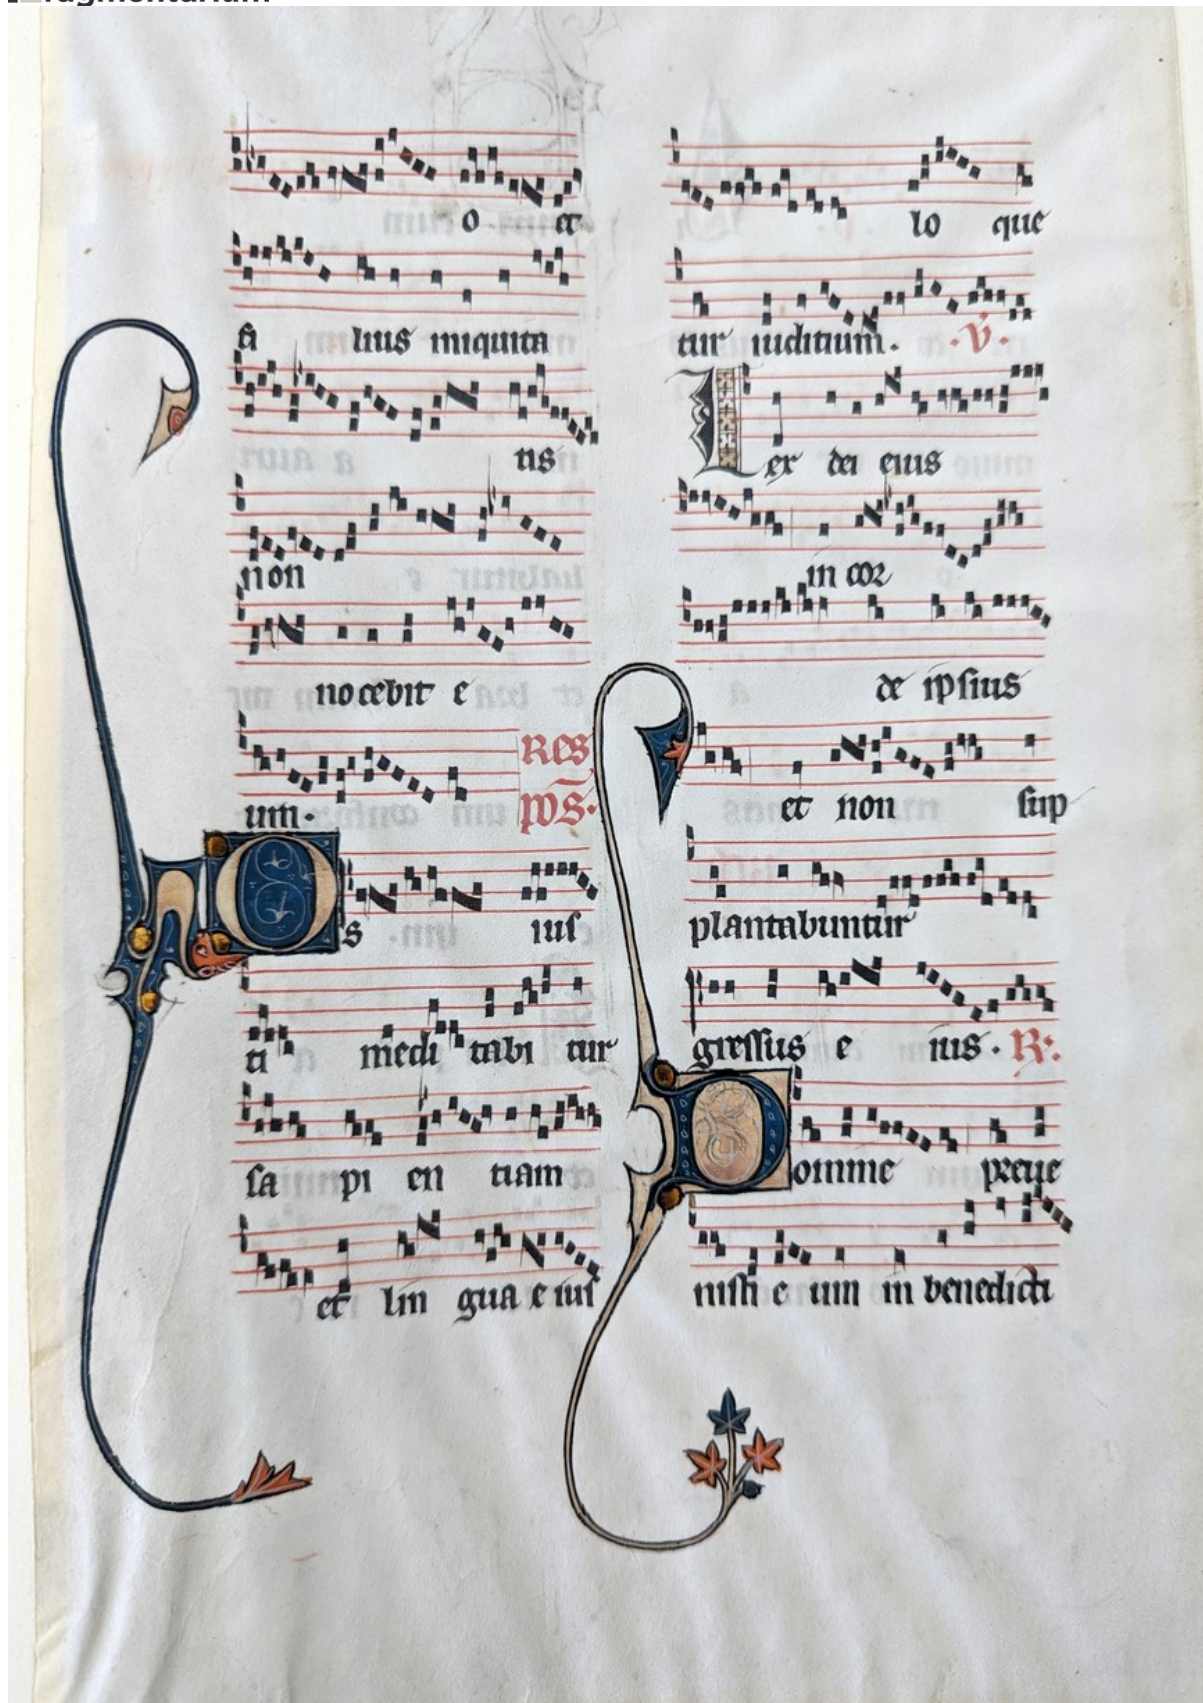 o et
fi lius iniquita
tis
non
nocebit e
um. Res
pōs.
Os iusˢ
ti medi tabi tur
sa pi en tiam
et lin gua e iusˢ
lo que
tur iuditium. .V̄.
Lex dei eius
in cor
de ipsius
et non sup
plantabuntur
gressus e ius. R:.
Domine preue
nisti e um in benedicti